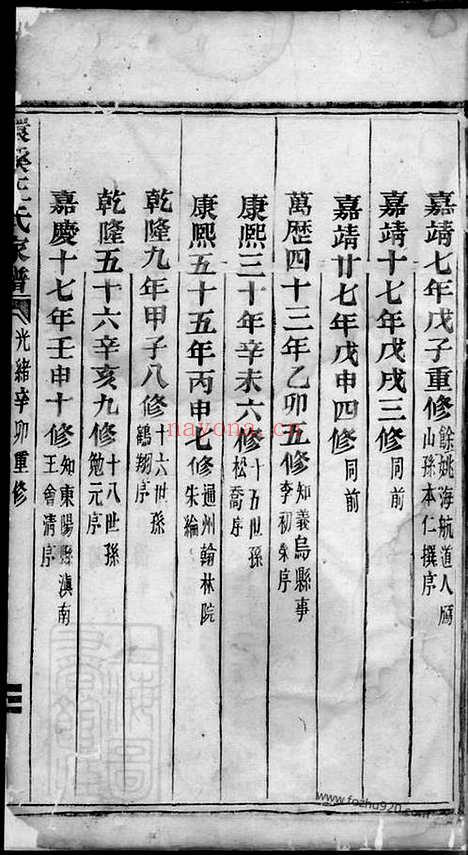 嘉靖七年戊子重修餘姚海航道人
山孫本仁撰序
嘉靖十七年戊戌三修同前
嘉靖廿七年戊申四修同前
萬歷四十三年乙卯五修知義烏縣事
李初榮序
康熙三十年辛未六修十五世孫
松喬序
康熙五十五年丙申七修通州翰林院
朱綸
乾隆九年甲子八修十六世孫
鶴翔序
乾隆五十六辛亥九修十八世孫
勉元序
嘉慶十七年壬申十修知東陽縣滇南
王會清序
溪王氏家譜
光緒辛卯重修
nayona.cn
上海圖書館藏
www.fozhu920.com